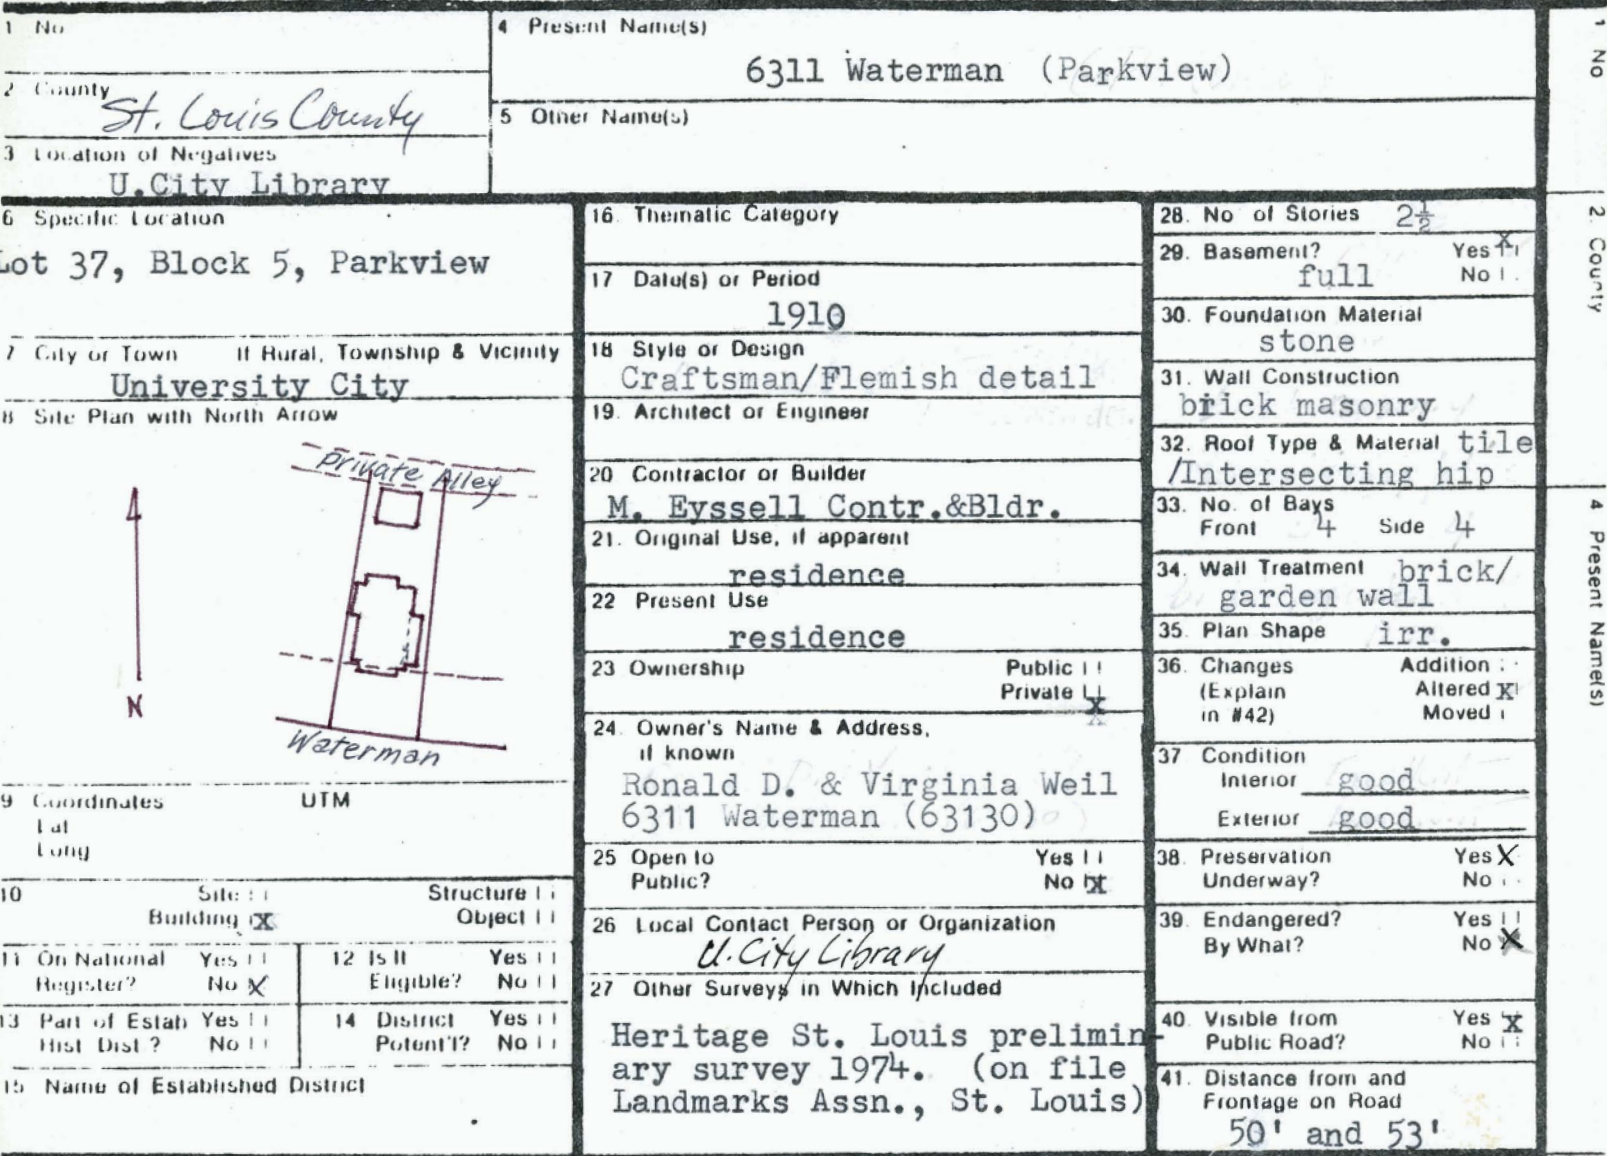 1 No
4 Present Name(s)
6311 Waterman (Parkview)
2 County
St. Louis County
5 Other Name(s)
3 Location of Negatives
U.City Library
6 Specific Location
Lot 37, Block 5, Parkview
7 City or Town If Rural, Township & Vicinity
University City
8 Site Plan with North Arrow
Private Alley
N
Waterman
9 Coordinates UTM
Lat
Long
10 Site
Structure
Building X
Object
11 On National Register? Yes
No X
12 Is It Eligible? Yes
No
13 Part of Estab Hist Dist? Yes
No
14 District Potent'l? Yes
No
15 Name of Established District
16. Thematic Category
17 Date(s) or Period
1910
18 Style or Design
Craftsman/Flemish detail
19. Architect or Engineer
20 Contractor or Builder
M. Eyssell Contr.&Bldr.
21. Original Use, if apparent
residence
22 Present Use
residence
23 Ownership Public
Private X
24. Owner's Name & Address,
if known
Ronald D. & Virginia Weil
6311 Waterman (63130)
25 Open to Yes
Public? No X
26 Local Contact Person or Organization
U. City Library
27 Other Surveys in Which Included
Heritage St. Louis prelimin-
ary survey 1974. (on file
Landmarks Assn., St. Louis)
28. No of Stories 2½
29. Basement? Yes X
full No
30. Foundation Material
stone
31. Wall Construction
brick masonry
32. Roof Type & Material tile
/Intersecting hip
33. No. of Bays
Front 4 Side 4
34. Wall Treatment brick/
garden wall
35. Plan Shape irr.
36. Changes Addition
(Explain Altered X
in #42) Moved
37 Condition
Interior good
Exterior good
38. Preservation Yes X
Underway? No
39. Endangered? Yes
By What? No X
40. Visible from Yes X
Public Road? No
41. Distance from and
Frontage on Road
50' and 53'
1 No
2. County
4 Present Name(s)